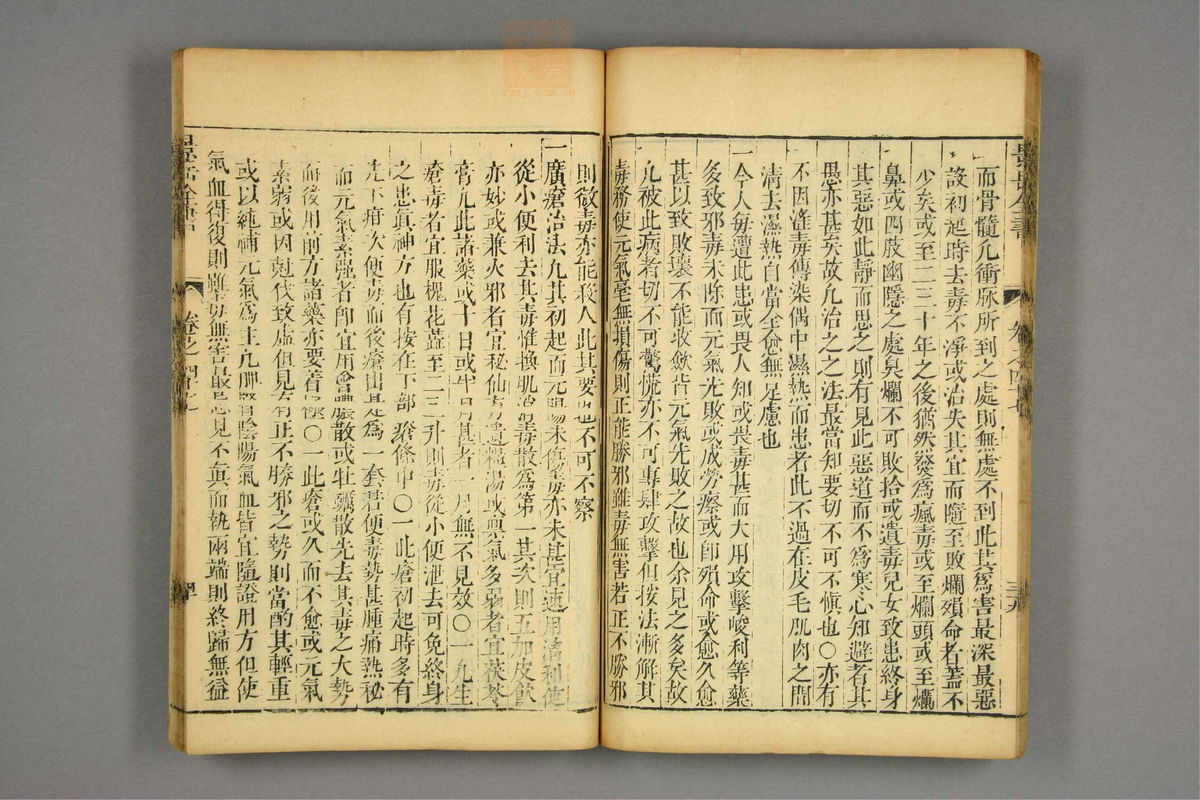 景岳全書
卷之四十七
三九
而骨髓凡衝脉所到之處則無處不到此其爲害最深最惡
設初起時去毒不淨或治失其宜而隨至敗爛殞命者蓋不
少矣或至二三十年之後猶然發爲瘋毒或至爛頭或至爛
鼻或四肢幽隱之處臭爛不可敗拾或遺毒兒女致患終身
其惡如此靜而思之則有見此惡道而不爲寒心知避者其
愚亦甚矣故凡治之之法最當知要切不可不愼也○亦有
不因淫毒傳染偶中濕熱而患者此不過在皮毛肌肉之間
清去濕熱自當全愈無足慮也
一今人毎遭此患或畏人知或畏毒甚而大用攻擊峻利等藥
多致邪毒未除而元氣先敗或成勞瘵或卽殞命或愈久愈
甚以致敗壞不能收斂皆元氣先敗之故也余見之多矣故
凡被此病者切不可驚慌亦不可專肆攻擊但按法漸解其
毒務使元氣毫無損傷則正能勝邪雖毒無害若正不勝邪
則微毒亦能殺人此其要也不可不察
一廣瘡治法凡其初起而元陽未傷毒亦未甚宜速用清利使
從小便利去其毒惟換肌消毒散爲第一其次則五加皮飲
亦妙或兼火邪者宜秘仙遺糧湯或氣多弱者宜茯苓
膏凡此諸藥或十日或半月甚者一月無不見效○一凡生
瘡毒者宜服槐花蕋至二三升則毒從小便泄去可免終身
之患眞神方也有按在下部瘡條中○一此瘡初起時多有
先下疳次便毒而後瘡出是爲一套若便毒勢甚腫痛熱秘
而元氣素强者卽宜用會膿散或牡蠣散先去其毒之大勢
而後用前方諸藥亦要着也○一此瘡或久而不愈或元氣
素弱或因尅伐致虛但見有正不勝邪之勢則當酌其輕重
或以純補元氣爲主凡脾腎陰陽氣血皆宜隨證用方但使
氣血得復則雖毒無害最忌見不眞而執兩端則終歸無益
卷之